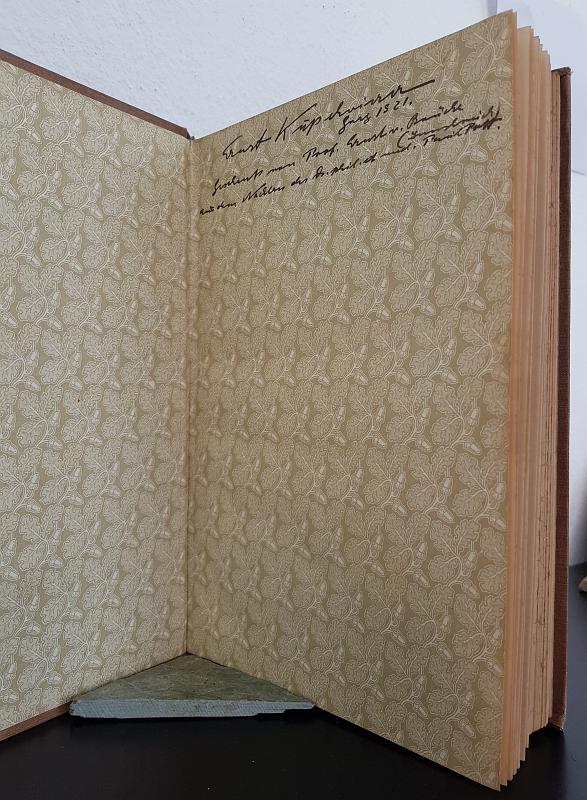 Ernst Küpelwieser
Graz 1921.
Geschenk von Prof. Ernst v. Brücke
aus dem Nachlass des Dr. phil. et med. Paul Hoff.